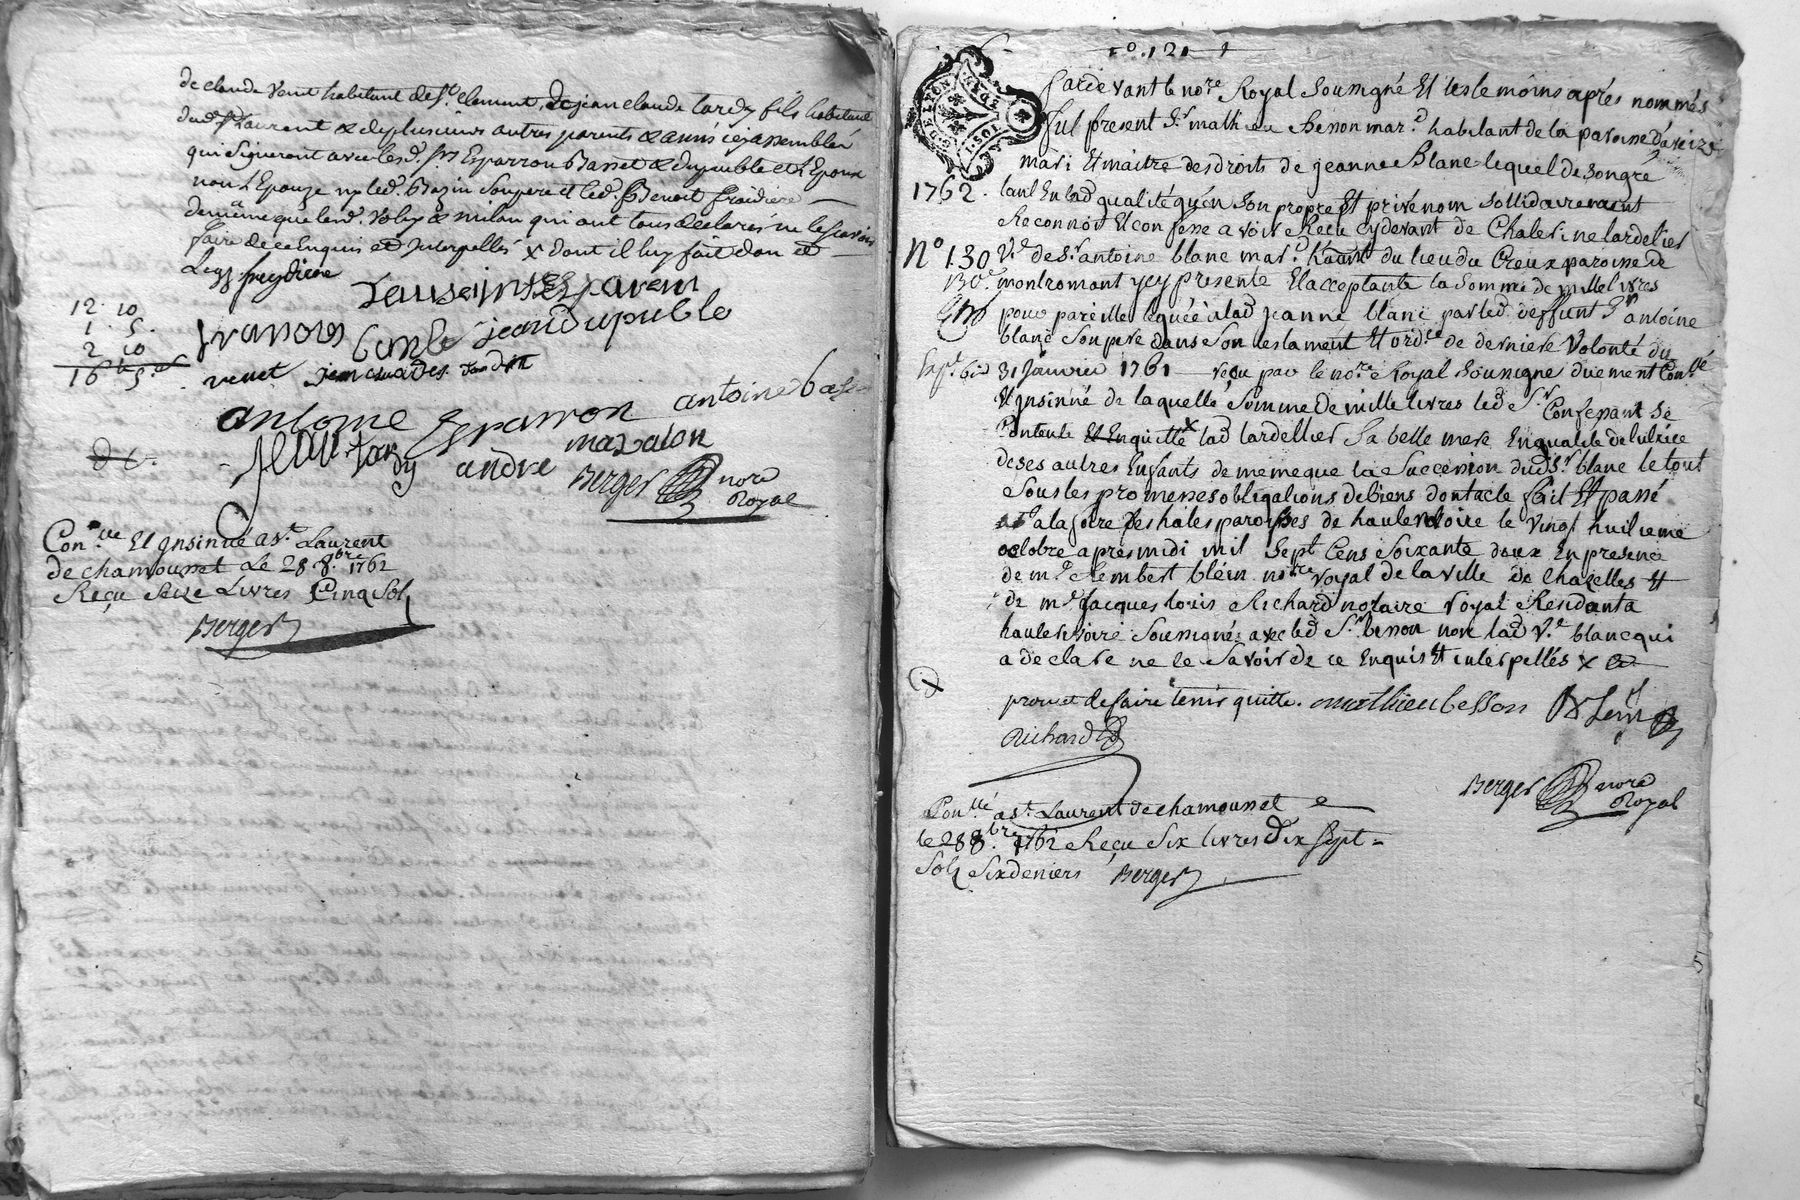 de claude Venet habitant de St. Clement, de jean claude tardy fils habitant
dud. St Laurent & de plusieurs autres parents & amis icy assemblés
qui signeront avec lesd. Srs Esparron Basset & dupuible et L'Epoux
non L'Epouze ny led. Bazin Soupere et led. Benoit
de même que lesd. Voley & milan qui ont tous declarés ne le scavoir
faire de ce Enquis et Interpellés x dont il luy fait don et
12 10
1 5
2 10
16 lt 5 s
françois Comb jean dupuible
venet jean claudes tardy
antoine Esparron antoine base
jean tardy andre mazalon
Berger nore
Royal
Con.lle Et Insinué a St. Laurent
de chamousset Le 28 8.bre 1762
Reçu Seize Livres Cinq Sols
Berger
n.o 121
GDE LYON
Pardevant le no.re Royal Soussigné Et les temoins aprés nommés
fut present Sr. mathieu Besson mar.d habitant de la paroisse d'aveize
mari Et maitre des droits de jeanne Blanc lequel de son gré
1762. tant En lad qualité qu'en Son propre Et privé nom sollidairement
Reconnoit Et confesse avoir Reçu cy devant de Chaterine lardelier
No 130 V.e de Sr. antoine blanc mar.d habitant du lieu du Creux paroisse de
130.e montromant ycy presente Et acceptante la Somme de mille livres
pour pareille leguée à lad jeanne blanc par led. deffunt Sr antoine
blanc Son pere dans Son testament Et ord.ce de derniere Volonté du
Exp.é 31 janvier 1761 reçu par le no.re Royal Soussigné duement Con.llé
Et insinué de laquelle Somme de mille livres led Sr Confessant Se
Contente Et En quitte x lad lardellier Sa belle mere En qualité de tutrice
de ses autres Enfants de meme que la Succession dud Sr. blanc le tout
Sous les promesses obligations de biens dont acte fait Et passé
a la foire des hales paroisses de hauterivoire le vingt huitieme
octobre aprés midi mil Sept Cens Soixante deux En presence
de m.e Rembert bléin no.re royal de la ville de Chazelles Et
de m.e Jacques louis Richard notaire royal Residant a
hauterivoire Soussignés avec led Sr. besson non lad V.e blanc qui
a declaré ne le Savoir de ce Enquis Et interpellés x
x promet de faire tenir quitte. mathieu besson Blein
Richard
Berger nore
Royal
Con.llé a St. Laurent de chamousset
le 28 8.bre 1762 Reçu Six livres Dix Sept
Sols Six deniers Berger